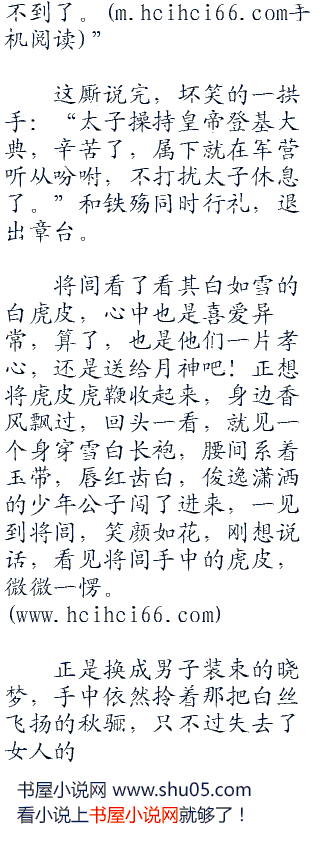 不到了。(m.hcihci66.com手
机阅读)”
这厮说完，坏笑的一拱
手：“太子操持皇帝登基大
典，辛苦了，属下就在军营
听从吩咐，不打扰太子休息
了。”和铁殇同时行礼，退
出章台。
将闾看了看其白如雪的
白虎皮，心中也是喜爱异
常，算了，也是他们一片孝
心，还是送给月神吧！正想
将虎皮虎鞭收起来，身边香
风飘过，回头一看，就见一
个身穿雪白长袍，腰间系着
玉带，唇红齿白，俊逸潇洒
的少年公子闯了进来，一见
到将闾，笑颜如花，刚想说
话，看见将闾手中的虎皮，
微微一愣。
(www.hcihci66.com)
正是换成男子装束的晓
梦，手中依然拎着那把白丝
飞扬的秋骊，只不过失去了
女人的
书屋小说网 www.shu05.com
看小说上书屋小说网就够了！